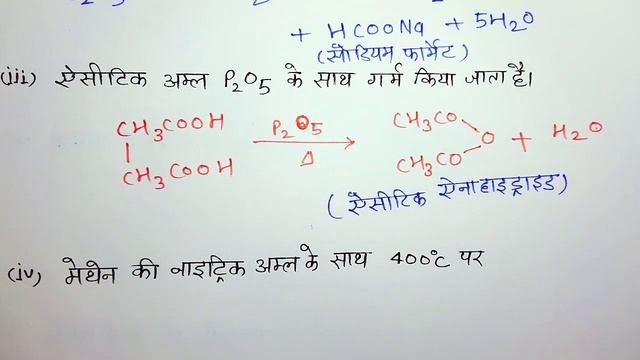 + HCOONa + 5H2O
(सोडियम फार्मेट)
(iii) ऐसीटिक अम्ल P2O5 के साथ गर्म किया जाता है।
CH3COOH P2O5 CH3CO
O + H2O
CH3COOH Δ CH3CO
(ऐसीटिक ऐनाहाइड्राइड)
(iv) मेथेन की नाइट्रिक अम्ल के साथ 400°C पर